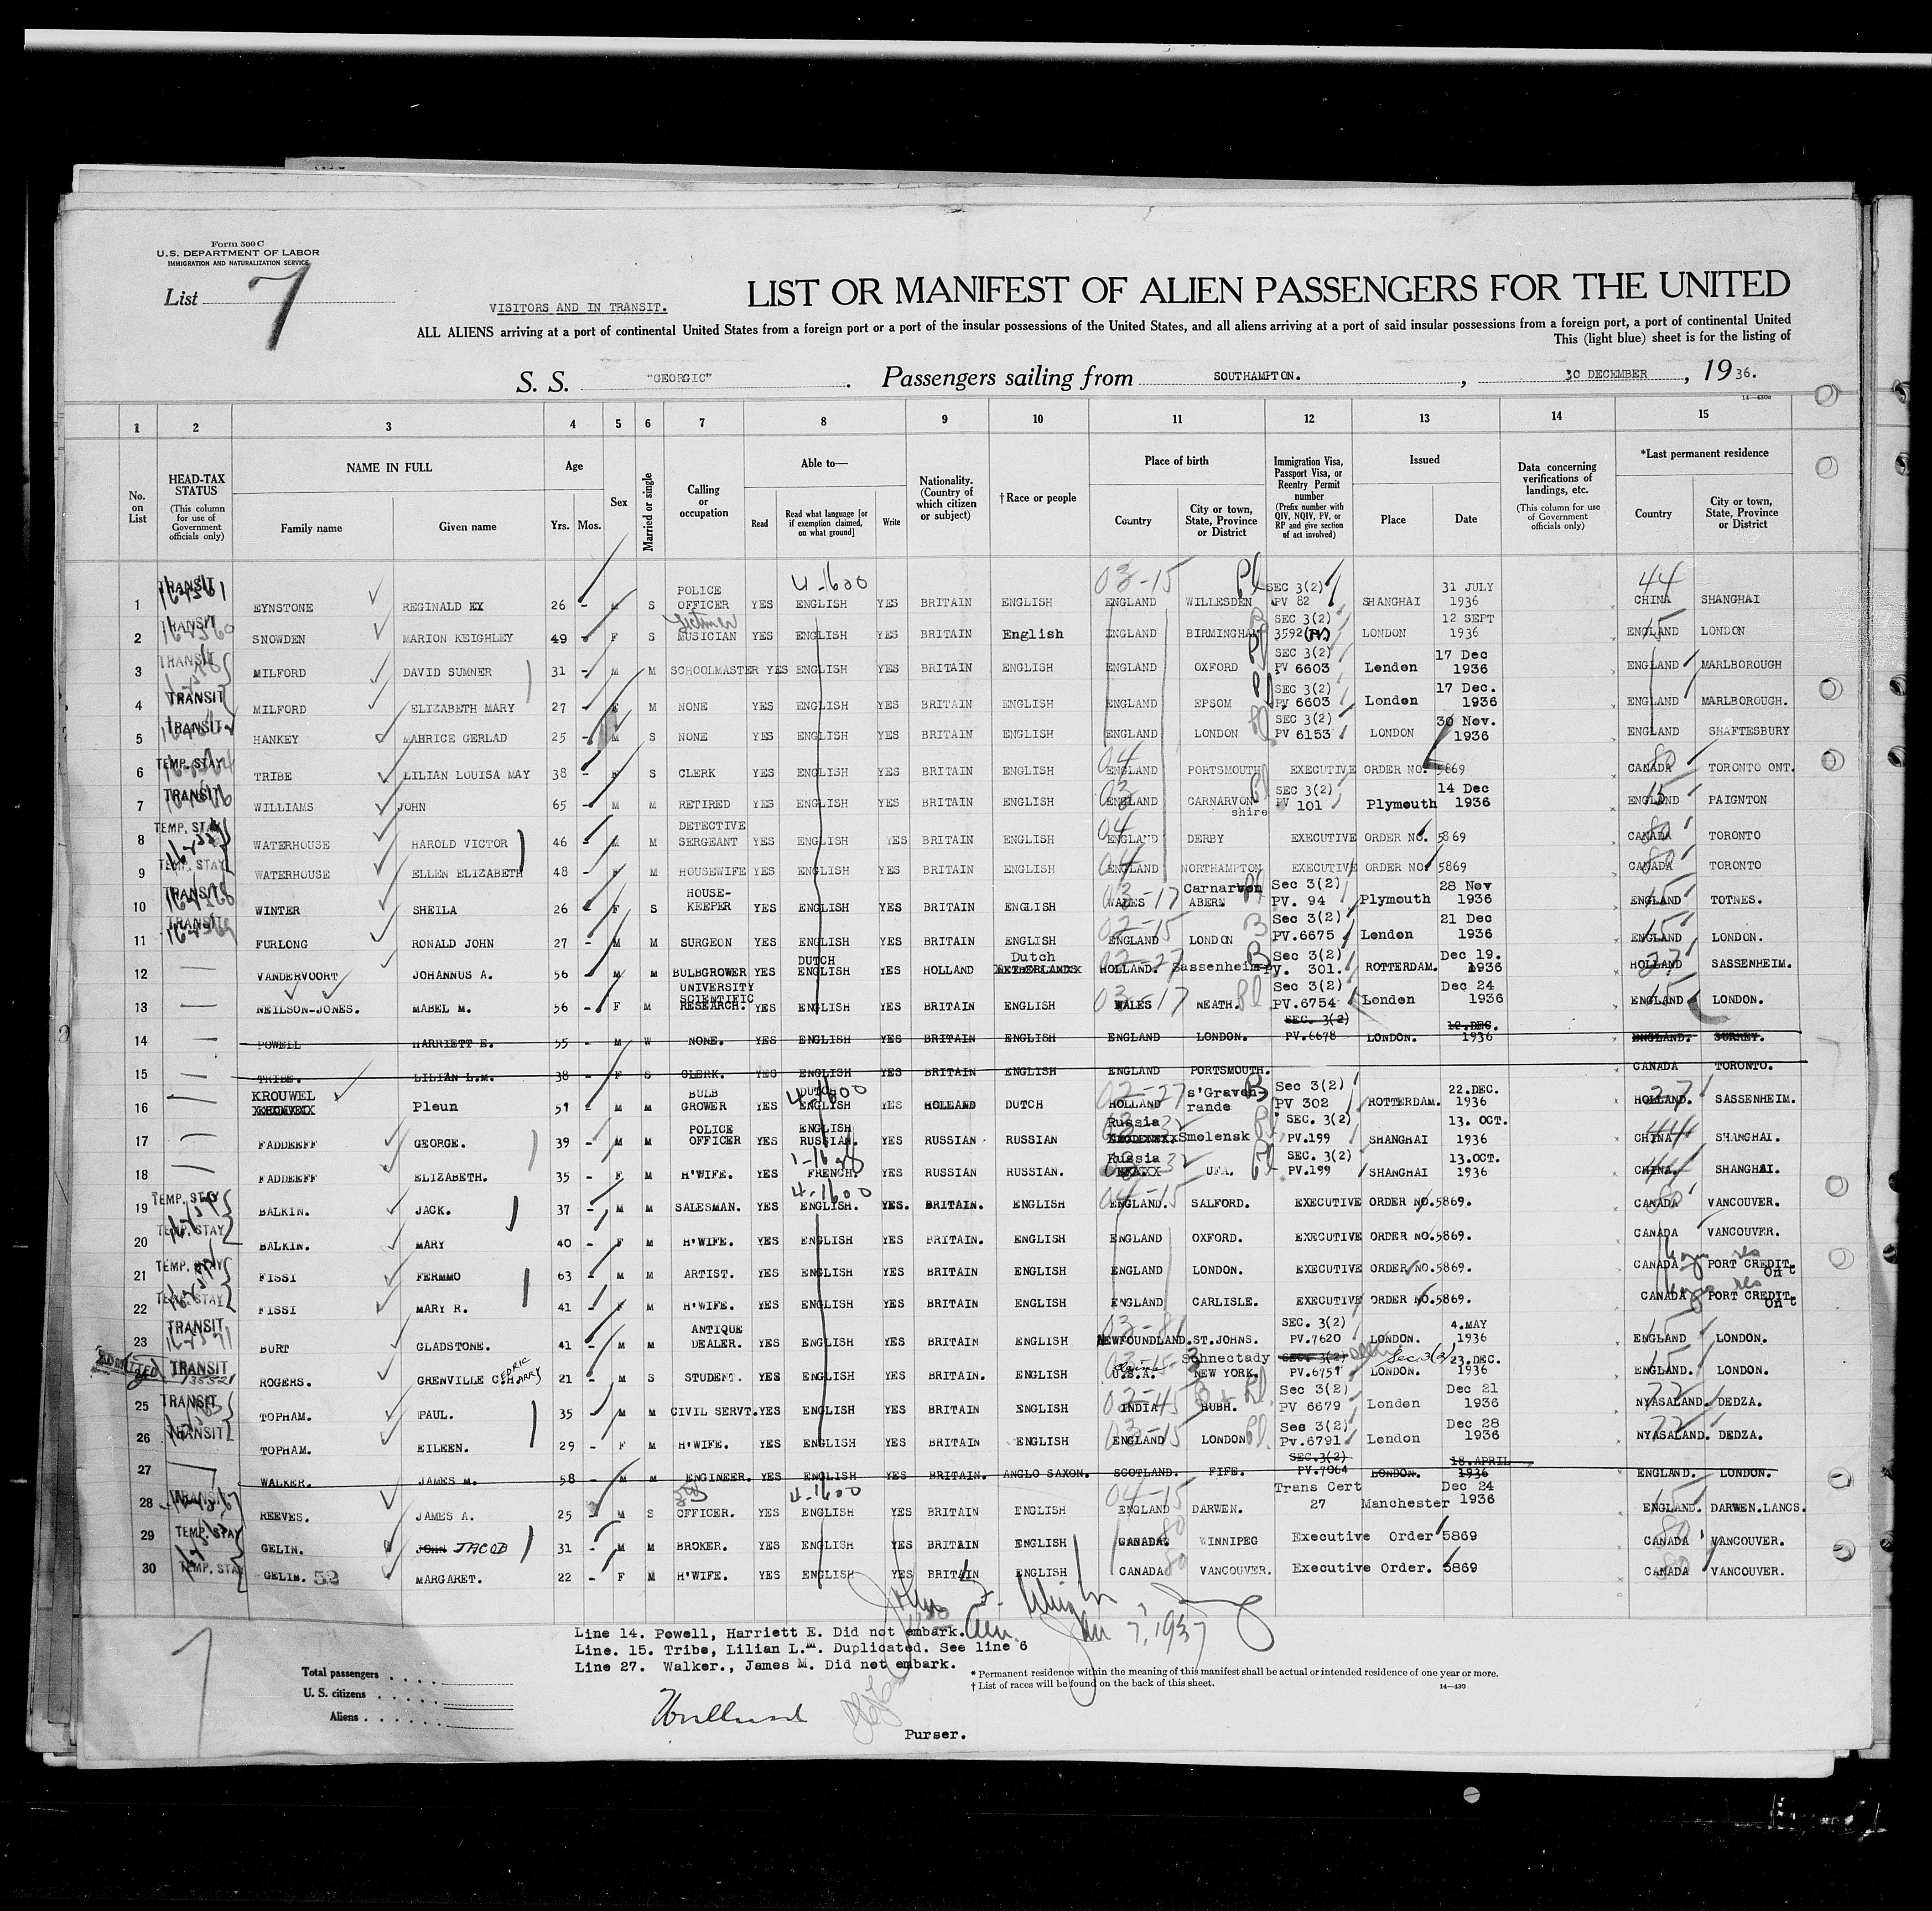 Form 500 C
U.S. DEPARTMENT OF LABOR
IMMIGRATION AND NATURALIZATION SERVICE
List 7
VISITORS AND IN TRANSIT.
LIST OR MANIFEST OF ALIEN PASSENGERS FOR THE UNITED
ALL ALIENS arriving at a port of continental United States from a foreign port or a port of the insular possessions of the United States, and all aliens arriving at a port of said insular possessions from a foreign port, a port of continental United
This (light blue) sheet is for the listing of
S. S. "GEORGIC". Passengers sailing from SOUTHAMPTON., 30 DECEMBER, 1936.
14—430a
1 2 3 4 5 6 7 8 9 10 11 12 13 14 15
No. on List
HEAD-TAX STATUS (This column for use of Government officials only)
NAME IN FULL Family name Given name
Age Yrs. Mos.
Sex
Married or single
Calling or occupation
Able to— Read Read what language [or if exemption claimed, on what ground] Write
Nationality. (Country of which citizen or subject)
†Race or people
Place of birth Country City or town, State, Province or District
Immigration Visa, Passport Visa, or Reentry Permit number (Prefix number with QIV, NQIV, PV, or RP and give section of act involved)
Issued Place Date
Data concerning verifications of landings, etc. (This column for use of Government officials only)
*Last permanent residence Country City or town, State, Province or District
1 TRANSIT EYNSTONE REGINALD EX 26 - M S POLICE OFFICER YES ENGLISH 4-1600 YES BRITAIN ENGLISH 03-15 ENGLAND WILLESDEN SEC 3(2) PV 82 SHANGHAI 31 JULY 1936 44 CHINA SHANGHAI
2 TRANSIT SNOWDEN MARION KEIGHLEY 49 - F S MUSICIAN YES ENGLISH YES BRITAIN English ENGLAND BIRMINGHAM SEC 3(2) 3592 (PV) LONDON 12 SEPT 1936 15 ENGLAND LONDON
3 TRANSIT MILFORD DAVID SUMNER 31 - M M SCHOOLMASTER YES ENGLISH YES BRITAIN ENGLISH ENGLAND OXFORD SEC 3(2) PV 6603 London 17 Dec 1936 ENGLAND MARLBOROUGH
4 TRANSIT MILFORD ELIZABETH MARY 27 - F M NONE YES ENGLISH YES BRITAIN ENGLISH ENGLAND EPSOM SEC 3(2) PV 6603 London 17 Dec. 1936 ENGLAND MARLBOROUGH.
5 TRANSIT HANKEY MABRICE GERLAD 25 - M S NONE YES ENGLISH YES BRITAIN ENGLISH ENGLAND LONDON SEC 3(2) PV 6153 LONDON 30 Nov. 1936 ENGLAND SHAFTESBURY
6 TEMP. STAY TRIBE LILIAN LOUISA MAY 38 - F S CLERK YES ENGLISH YES BRITAIN ENGLISH 04 ENGLAND PORTSMOUTH EXECUTIVE ORDER NO. 5869 80 CANADA TORONTO ONT.
7 TRANSIT WILLIAMS JOHN 65 - M M RETIRED YES ENGLISH YES BRITAIN ENGLISH 03 ENGLAND CARNARVON-shire SEC 3(2) PV 101 Plymouth 14 Dec 1936 15 ENGLAND PAIGNTON
8 TEMP. STAY WATERHOUSE HAROLD VICTOR 46 - M M DETECTIVE SERGEANT YES ENGLISH YES BRITAIN ENGLISH 04 ENGLAND DERBY EXECUTIVE ORDER NO. 5869 80 CANADA TORONTO
9 TEMP. STAY WATERHOUSE ELLEN ELIZABETH 48 - F M HOUSEWIFE YES ENGLISH YES BRITAIN ENGLISH 04 ENGLAND NORTHAMPTON EXECUTIVE ORDER NO. 5869 80 CANADA TORONTO
10 TRANSIT WINTER SHEILA 26 - F S HOUSE-KEEPER YES ENGLISH YES BRITAIN ENGLISH 03-17 WALES Carnarvon ABERN Sec 3(2) PV. 94 Plymouth 28 Nov 1936 15 ENGLAND TOTNES.
11 TRANSIT FURLONG RONALD JOHN 27 - M M SURGEON YES ENGLISH YES BRITAIN ENGLISH 02-15 ENGLAND LONDON Sec 3(2) PV.6675 London 21 Dec 1936 15 ENGLAND LONDON.
12 — VANDERVOORT JOHANNUS A. 56 - M M BULBGROWER YES DUTCH ENGLISH YES HOLLAND Dutch NETHERLANDS 02-27 HOLLAND. Sassenheim Sec 3(2) PV. 301. ROTTERDAM. Dec 19. 1936 27 HOLLAND SASSENHEIM.
13 — NEILSON-JONES. MABEL M. 56 - F M UNIVERSITY SCIENTIFIC RESEARCH. YES ENGLISH YES BRITAIN ENGLISH 03-17 WALES NEATH. Sec 3(2) PV.6754 London Dec 24 1936 15 ENGLAND LONDON.
14 — POWELL HARRIETT E. 55 - M W NONE. YES ENGLISH YES BRITAIN ENGLISH ENGLAND LONDON. SEC. 3(2) PV.6678 LONDON. 12.DEC. 1936 ENGLAND. SURREY.
15 — TRIBE. LILIAN L.M. 38 - F S CLERK. YES ENGLISH YES BRITAIN ENGLISH ENGLAND PORTSMOUTH. CANADA TORONTO.
16 — KROUWEL Pleun 51 - M M BULB GROWER YES DUTCH ENGLISH 4-1600 YES HOLLAND DUTCH 02-27 HOLLAND s'Graven-rande Sec 3(2) PV 302 ROTTERDAM. 22.DEC. 1936 27 HOLLAND. SASSENHEIM.
17 — FADDEEFF GEORGE. 39 - M M POLICE OFFICER YES ENGLISH RUSSIAN. YES RUSSIAN RUSSIAN Russia Smolensk SEC. 3(2) PV.199 SHANGHAI 13. OCT. 1936 44 CHINA SHANGHAI.
18 — FADDEEFF ELIZABETH. 35 - F M H'WIFE. YES FRENCH YES RUSSIAN RUSSIAN. Russia UFA. SEC. 3(2) PV.199 SHANGHAI 13.OCT. 1936 44 CHINA. SHANGHAI.
19 TEMP. STAY BALKIN. JACK. 37 - M M SALESMAN. YES ENGLISH. 4-1600 YES. BRITAIN. ENGLISH 04-15 ENGLAND. SALFORD. EXECUTIVE ORDER NO.5869. 80 CANADA VANCOUVER.
20 TEMP. STAY BALKIN. MARY 40 - F M H'WIFE. YES ENGLISH YES BRITAIN. ENGLISH ENGLAND OXFORD. EXECUTIVE ORDER NO.5869. CANADA VANCOUVER.
21 TEMP. STAY FISSI FERMMO 63 - M M ARTIST. YES ENGLISH YES BRITAIN ENGLISH ENGLAND LONDON. EXECUTIVE ORDER NO.5869. CANADA PORT CREDIT. Ont
22 TEMP. STAY FISSI MARY R. 41 - F M H'WIFE. YES ENGLISH YES BRITAIN ENGLISH ENGLAND CARLISLE. EXECUTIVE ORDER NO.5869. CANADA PORT CREDIT. Ont
23 TRANSIT BURT GLADSTONE. 41 - M M ANTIQUE DEALER. YES ENGLISH YES BRITAIN ENGLISH NEWFOUNDLAND. ST.JOHNS. SEC. 3(2) PV.7620 LONDON. 4.MAY 1936 15 ENGLAND LONDON.
ADMITTED TRANSIT ROGERS. GRENVILLE CEDRIC HARRY 21 - M S STUDENT. YES ENGLISH YES BRITAIN. ENGLISH 03-15 U.S.A. Schnectady NEW YORK. SEC. 3(2) Sec 3(2) PV.6751 LONDON. 23.DEC. 1936 15 ENGLAND. LONDON.
25 TRANSIT TOPHAM. PAUL. 35 - M M CIVIL SERVT. YES ENGLISH YES BRITAIN ENGLISH INDIA BUBH. Sec 3(2) PV 6679 London Dec 21 1936 NYASALAND. DEDZA.
26 TRANSIT TOPHAM. EILEEN. 29 - F M H'WIFE. YES ENGLISH YES BRITAIN ENGLISH 03-15 ENGLAND LONDON Sec 3(2) Pv.6791 London Dec 28 1936 NYASALAND. DEDZA.
27 WALKER. JAMES M. 58 - M M ENGINEER. YES ENGLISH YES BRITAIN. ANGLO SAXON. SCOTLAND. FIFE. SEC.3(2) PV.7064 LONDON. 18.APRIL 1936 ENGLAND. LONDON.
28 TRANSIT REEVES. JAMES A. 25 - M S OFFICER. YES ENGLISH 4-1600 YES BRITAIN ENGLISH 04-15 ENGLAND DARWEN. Trans Cert 27 Manchester Dec 24 1936 15 ENGLAND. DARWEN.LANCS.
29 TEMP. STAY GELIN. JOHN JACOB 31 - M M BROKER. YES ENGLISH YES BRITAIN ENGLISH CANADA. 80 WINNIPEG Executive Order 5869 80 CANADA VANCOUVER.
30 TEMP. STAY GELIN. 52 MARGARET. 22 - F M H'WIFE. YES ENGLISH YES BRITAIN ENGLISH CANADA 80 VANCOUVER. Executive Order. 5869 80 CANADA VANCOUVER.
Line 14. Powell, Harriett E. Did not embark.
Jan 7, 1937
Line. 15. Tribe, Lilian L.M. Duplicated. See line 6
Line 27. Walker., James M. Did not embark.
Total passengers
U. S. citizens
Aliens
* Permanent residence within the meaning of this manifest shall be actual or intended residence of one year or more.
† List of races will be found on the back of this sheet.
14—430
Purser.